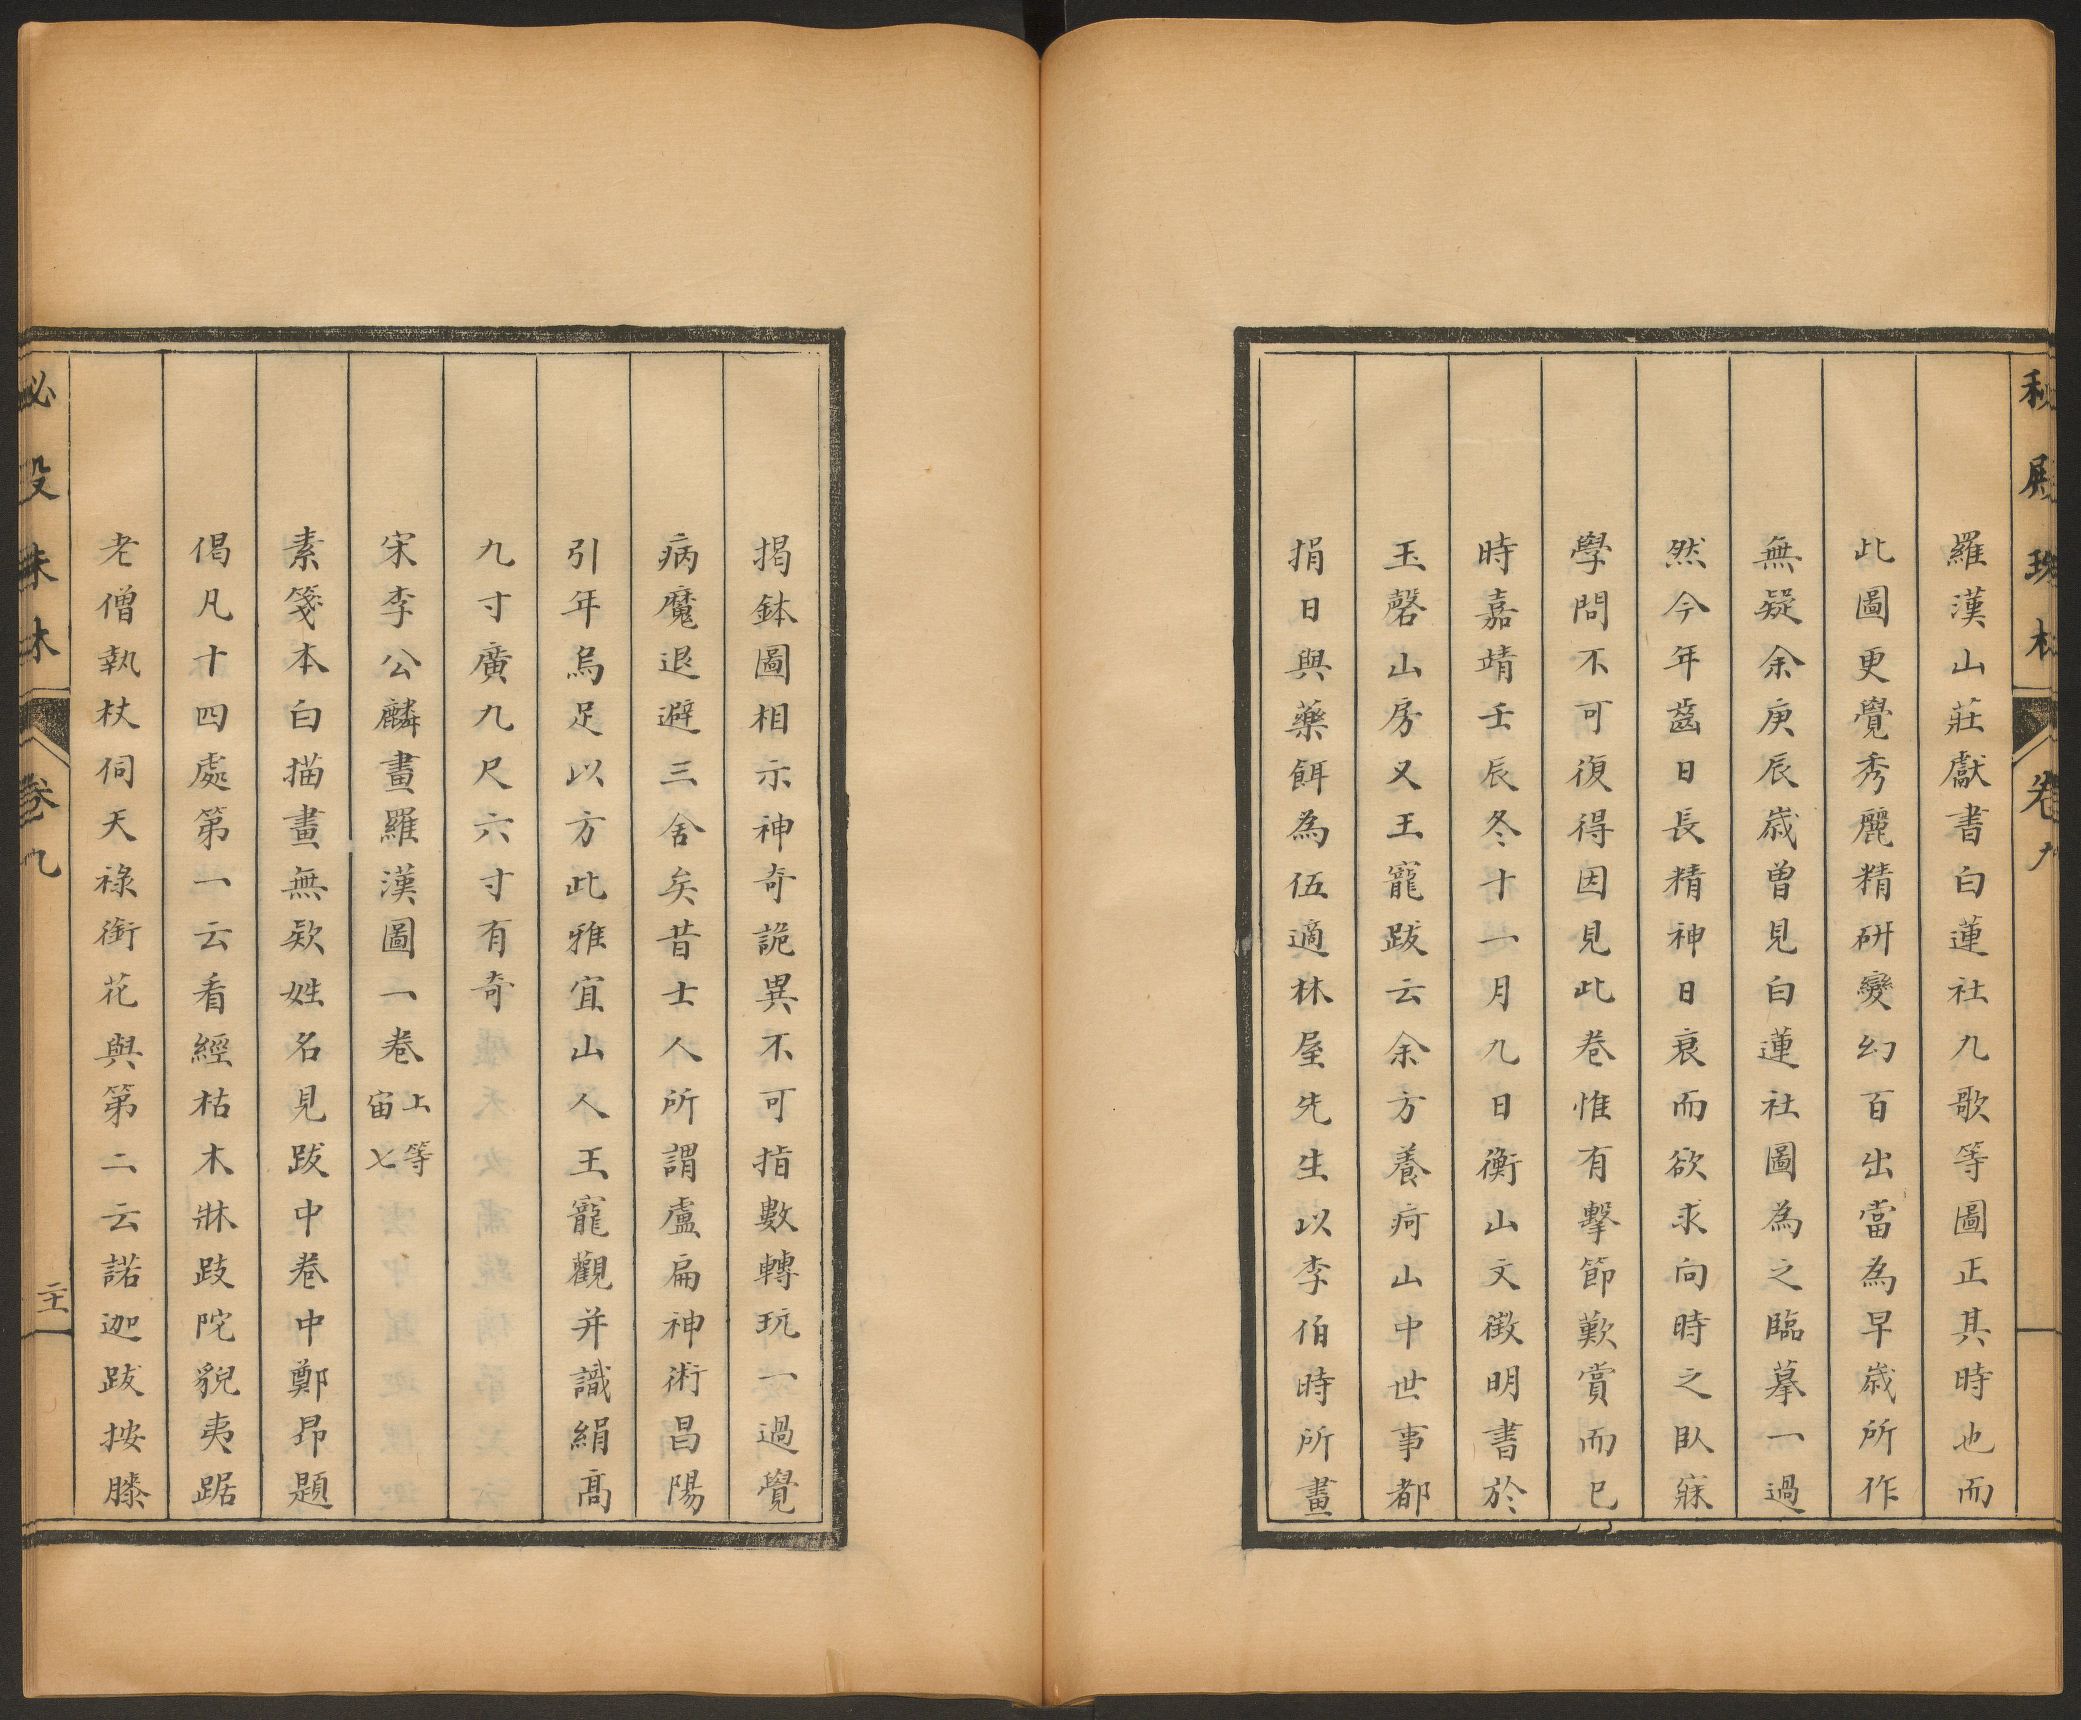 羅漢山莊獻書白蓮社九歌等圖正其時也而
此圖更覺秀麗精研變幻百出當為早歲所作
無疑余庚辰歲曾見白蓮社圖為之臨摹一過
然今年齒日長精神日衰而欲求向時之臥寐
學問不可復得因見此卷惟有擊節歎賞而已
時嘉靖壬辰冬十一月九日衡山文徵明書於
玉磬山房又王寵跋云余方養疴山中世事都
捐日與藥餌為伍適林屋先生以李伯時所畫
揭鉢圖相示神奇詭異不可指數轉玩一過覺
病魔退避三舍矣昔士人所謂盧扁神術昌陽
引年烏足以方此雅宜山人王寵觀并識絹高
九寸廣九尺六寸有奇
宋李公麟畫羅漢圖一卷 上等 宙七
素箋本白描畫無欵姓名見跋中卷中鄭昂題
偈凡十四處第一云看經枯木牀跂陀貎夷踞
老僧執杖伺天祿銜花與第二云諾迦跋按膝
卷九